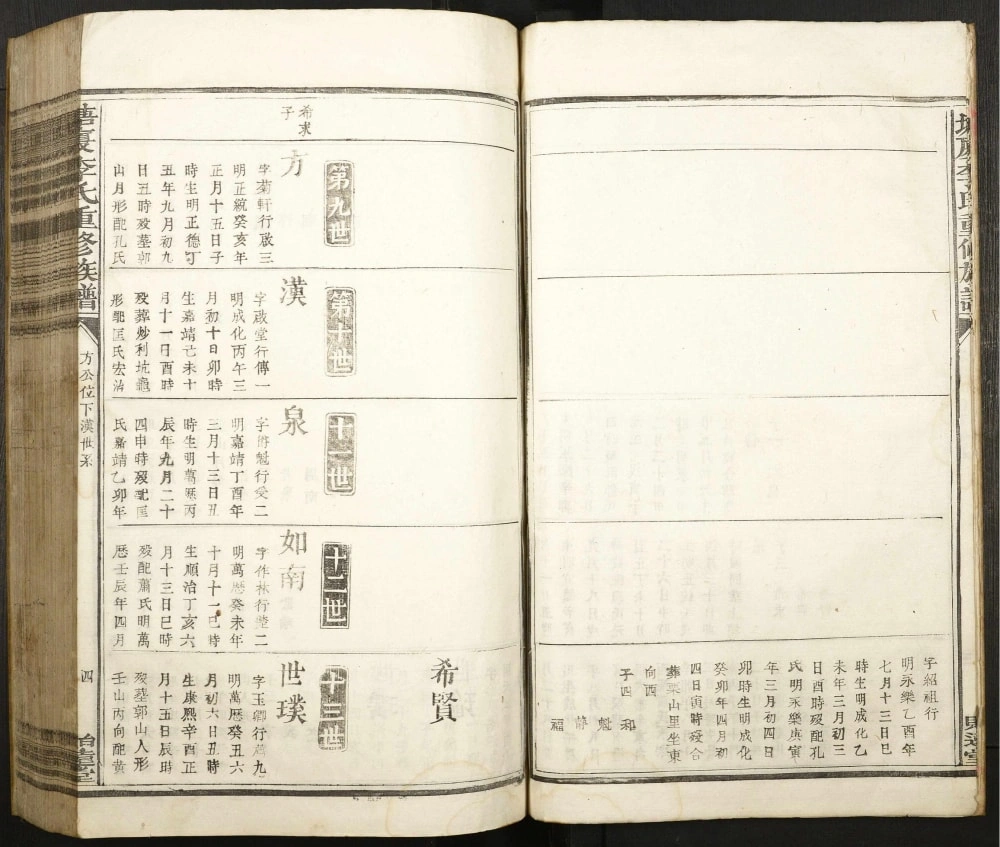 字紹祖行
明永樂乙酉年
七月十三日巳
時生明成化乙
未年三月初三
日酉時歿配孔
氏明永樂庚寅
年三月初四日
卯時生明成化
癸卯年四月初
四日寅時歿合
葬栗山里坐東
向西
子四
和
魁
靜
福
希賢
希求
子
第九世
方
字菊軒行啟三
明正統癸亥年
正月十五日子
時生明正德丁
丑年九月初九
日丑時歿墓郭
山月形配孔氏
第十世
漢
字啟堂行傳一
明成化丙午三
月初十日卯時
生嘉靖丁未十
月十一日酉時
歿葬炒利坑龜
形配匡氏宏治
十一世
泉
行受二
明嘉靖丁酉年
三月十三日丑
時生明萬曆丙
辰年九月二十
四申時歿配匡
氏嘉靖乙卯年
十二世
如南
字作林行
二
明萬曆癸未年
十月十一巳時
生順治丁亥六
月十三日巳時
歿配蕭氏明萬
曆壬辰年四月
十三世
世璞
字玉卿行
九
明萬曆癸丑六
月初六日丑時
生康熙辛酉正
月十五日辰時
歿墓郭山人形
壬山丙向配黃
李氏重修族譜
方公位下漢世系
四